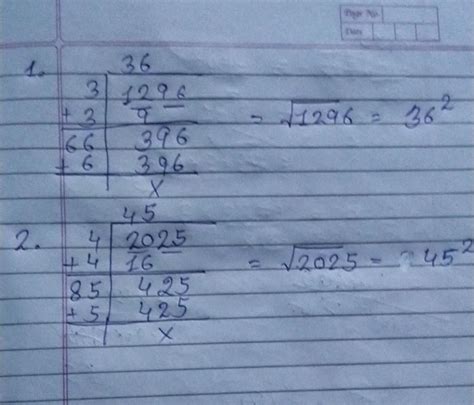 Page No.
Date
36
1. 3 | 1296
+ 3 | 9 = √1296 = 36²
66 | 396
+ 6 | 396
x
45
2. 4 | 2025
+ 4 | 16 = √2025 = 45²
85 | 425
+ 5 | 425
x